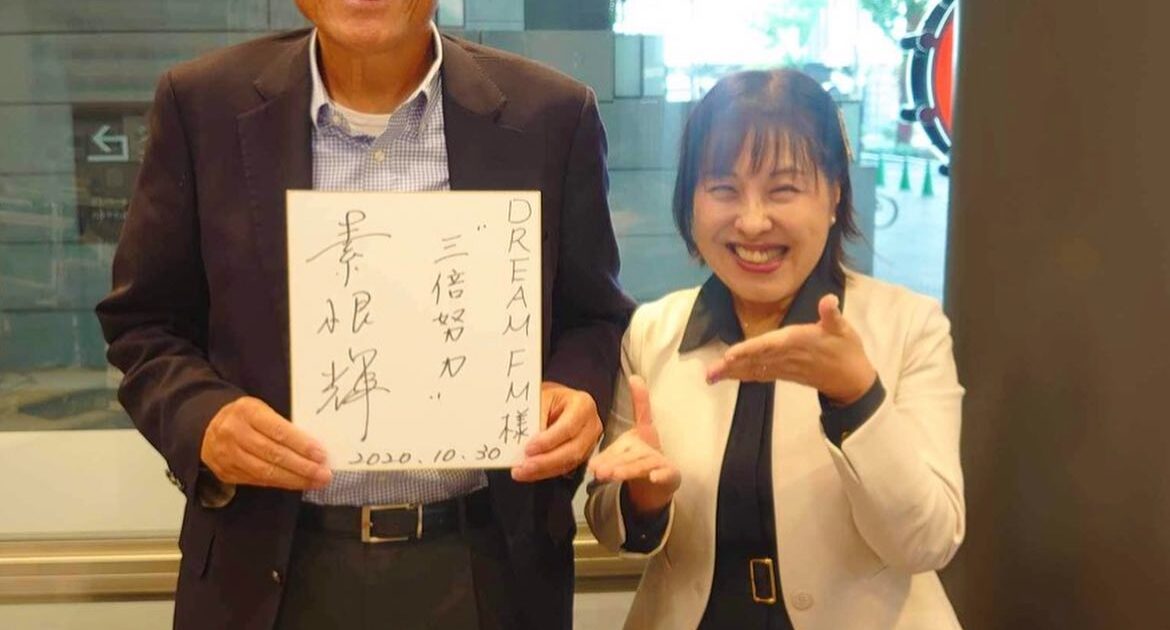 DREAM FM様
"三倍努力"
素根輝
2020.10.30